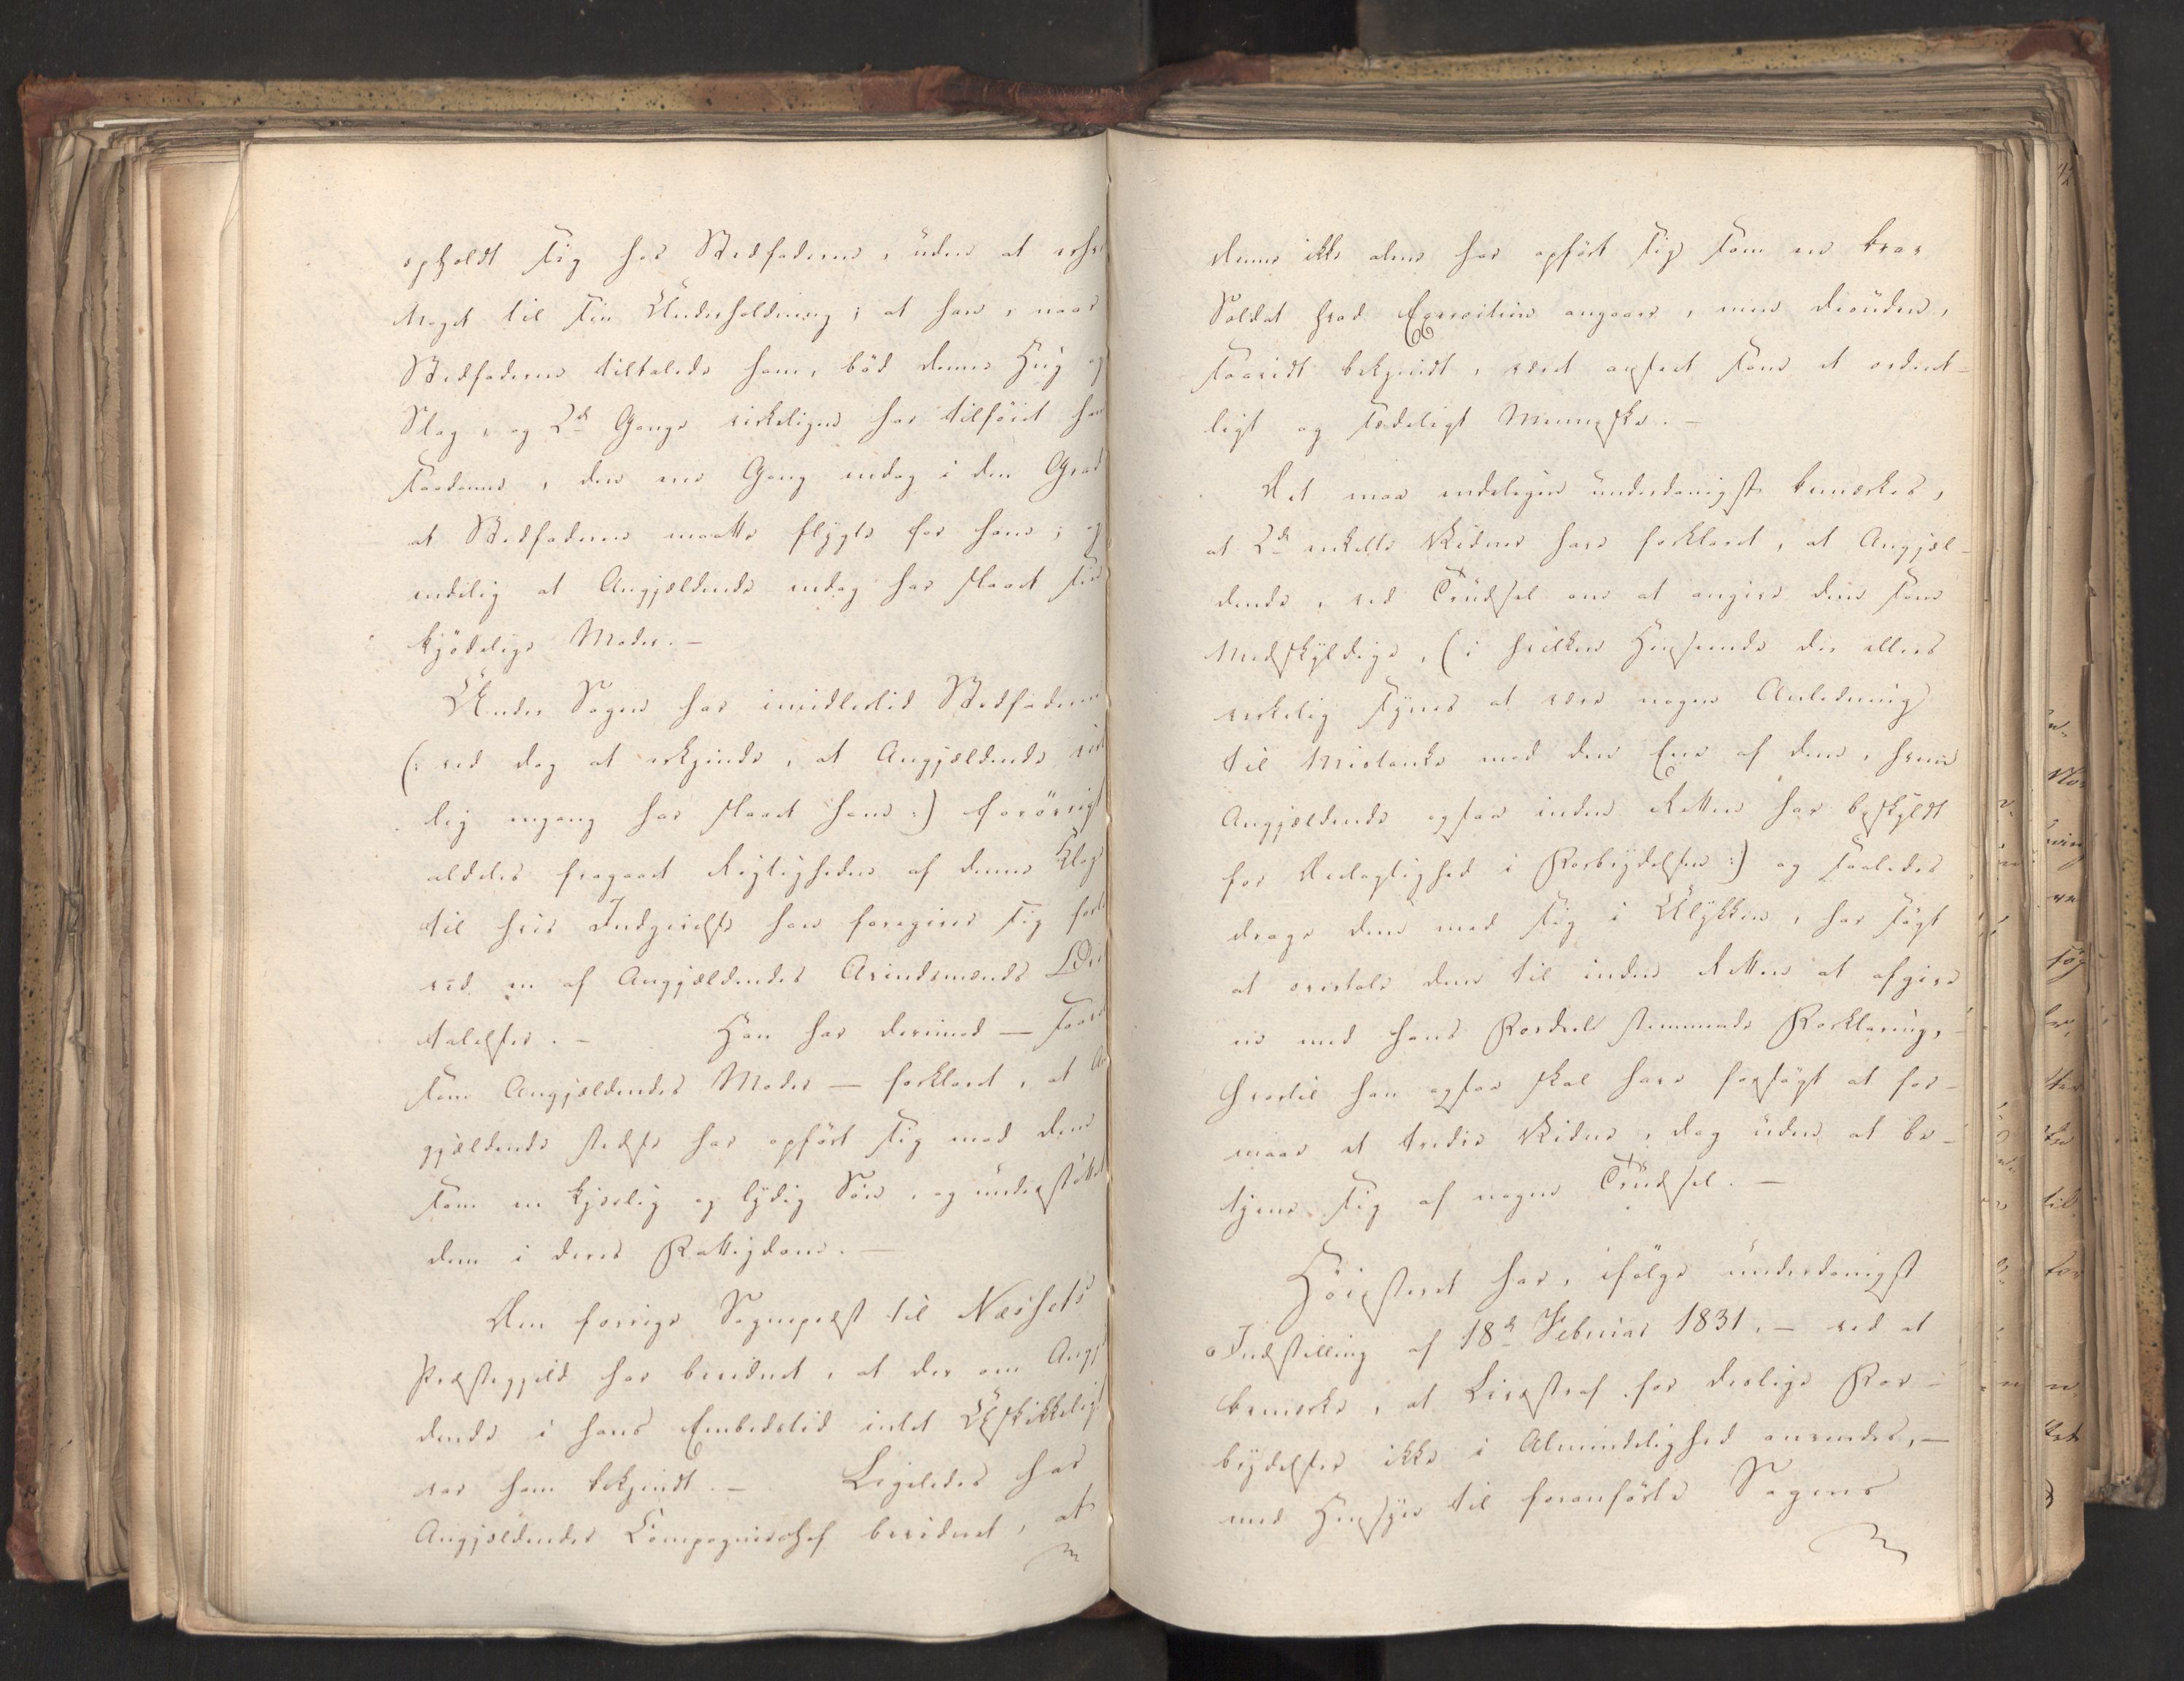 opholdt sig hos Stedfaderen, uden at erhver
Noget til sin Underholdning; at han, naar
Stedfaderen tiltalede ham, bød denne Hug og
Slag, og 2de Gange virkeligen har tilføiet ham
saadanne, den ene Gang endog i den Grad
at Stedfaderen maatte flygte for ham; og
endelig at Angjældende endog har slaaet sin
kjødelige Moder. —
Under Sagen har imidlertid Stedfaderen
(: ved dog at erkjende, at Angjældende virke
lig engang har slaaet ham :) forøvrigt
aldeles fragaaet Rigtigheden af denne Klage
til hvis Indgivelse han foregiver sig forle
ved en af Angjældendes Avindsmænds Over
talelser. — Han har derimod — saavel
som Angjældendes Moder — forklaret, at An
gjældende stedse har opført sig mod dem
som en kjærlig og lydig Søn, og understøttet
dem i deres Fattigdom. —
Den forrige Sognepræst til Næssets
Præstegjeld har bevidnet, at der om Angjæl
dende i hans Embedstid intet Uskikkeligt
var ham bekjendt. — Ligeledes har
Angjældendes Compagniechef bevidnet, at
denne ikke alene har opført sig som en brav
Soldat hvad Exercitien angaaer, men desuden,
saavidt bekjendt, været anseet som et ordent-
ligt og sædeligt Menneske. —
Det maa endeligen underdanigst bemærkes,
at 2de enkelte Vidner have forklaret, at Angjæl-
dende, ved Trudsel om at angive dem som
Medskyldige, (i hvilken Henseende der ellers
virkelig synes at være nogen Anledning
til Mistanke mod den Ene af dem, hvem
Angjældende ogsaa inden Retten har beskyldt
for Deelagtighed i Forbrydelsen :) og saaledes
drage dem med sig i Ulykken, har søgt
at overtale dem til inden Retten at afgive
en med hans Fordeel stemmende Forklaring,
hvortil han ogsaa skal have forsøgt at for-
maae et tredie Vidne, dog uden at be-
tjene sig af nogen Trudsel. —
Høiesteret har, ifølge underdanigst
Indstilling af 18de Februar 1831, — ved at
bemærke, at Livsstraf for deslige For-
brydelser ikke i Almindelighed anvendes, —
med Hensyn til foranførte Sagens